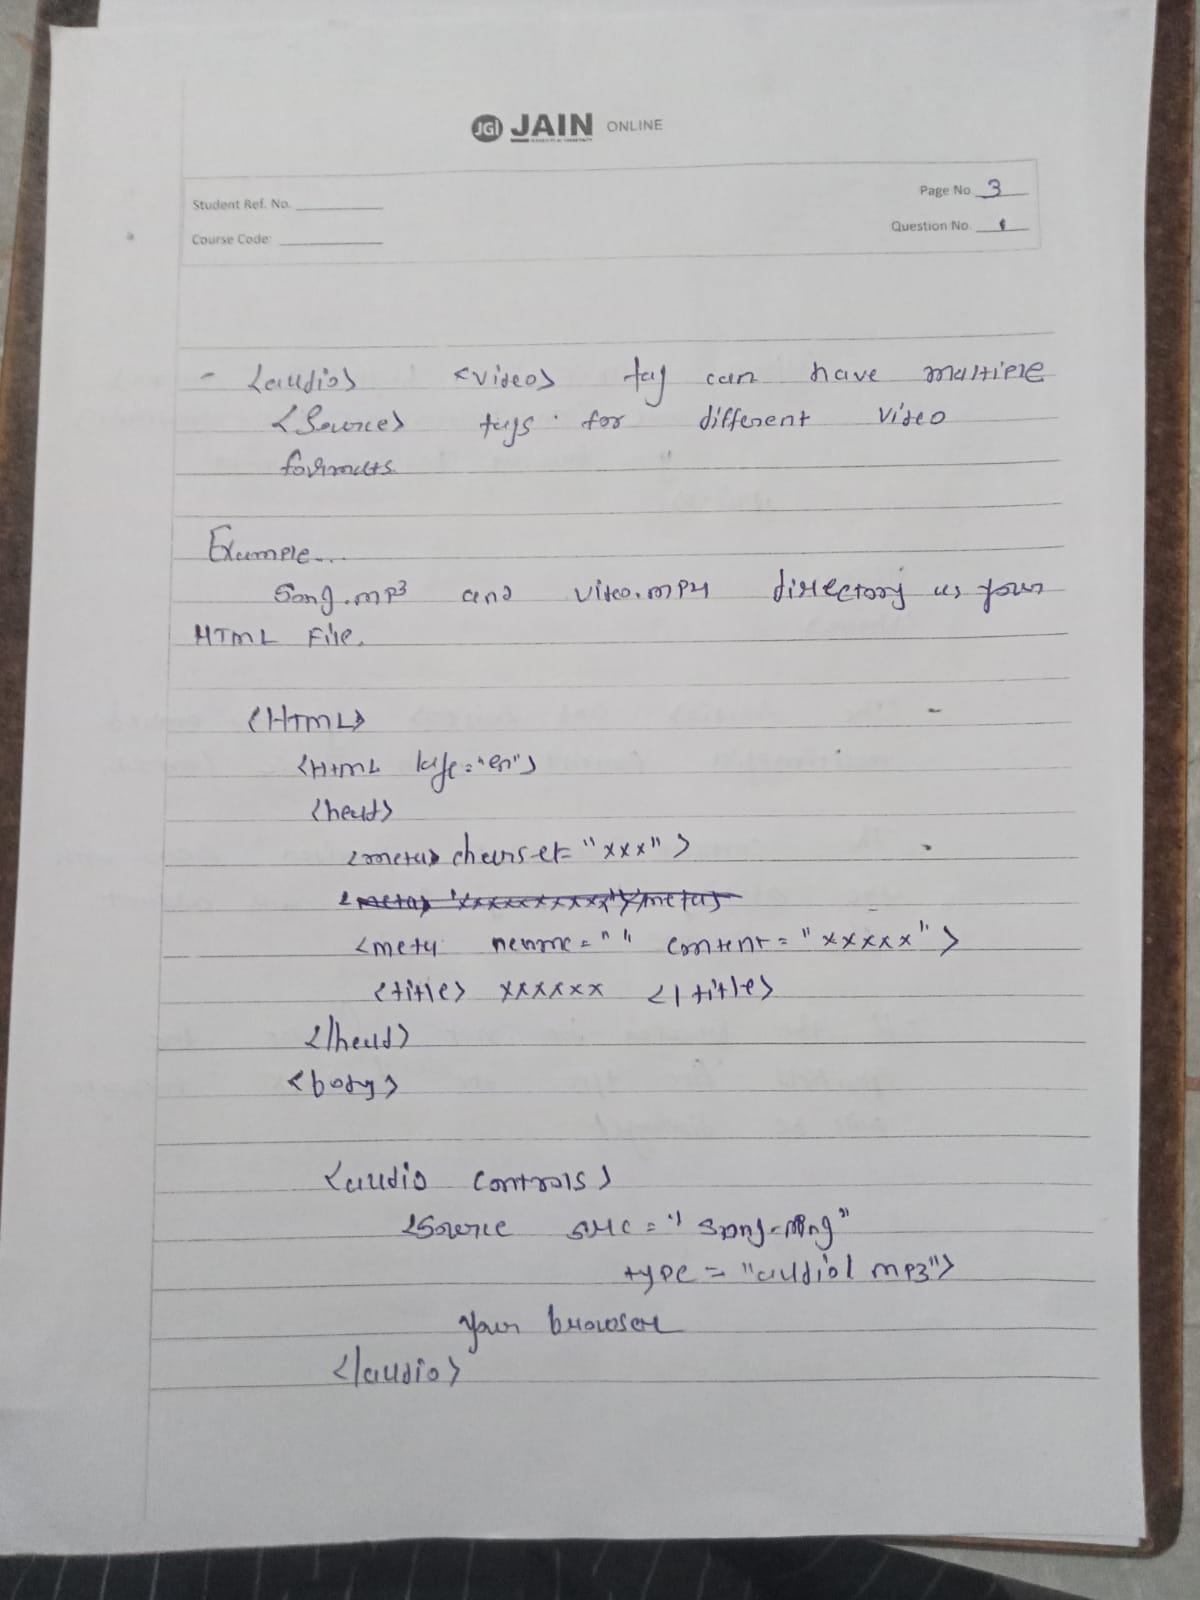 JGI JAIN ONLINE
Student Ref. No.
Page No 3
Course Code:
Question No. 1
- <audio> <video> tag can have multiple
<Source> tags for different video
formats
Example...
Song.mp3 and video.mp4 directory as your
HTML File.
<HTML>
<HTML ="en">
<head>
<meta> charset= "xxx" >
<meta> "xxxxxxxxxx"></meta>
<meta name = " " content = "xxxxx" >
<title> xxxxxx </title>
</head>
<body>
<audio controls>
<Source src = "
type = "audio/ mp3">
your browser
</audio>